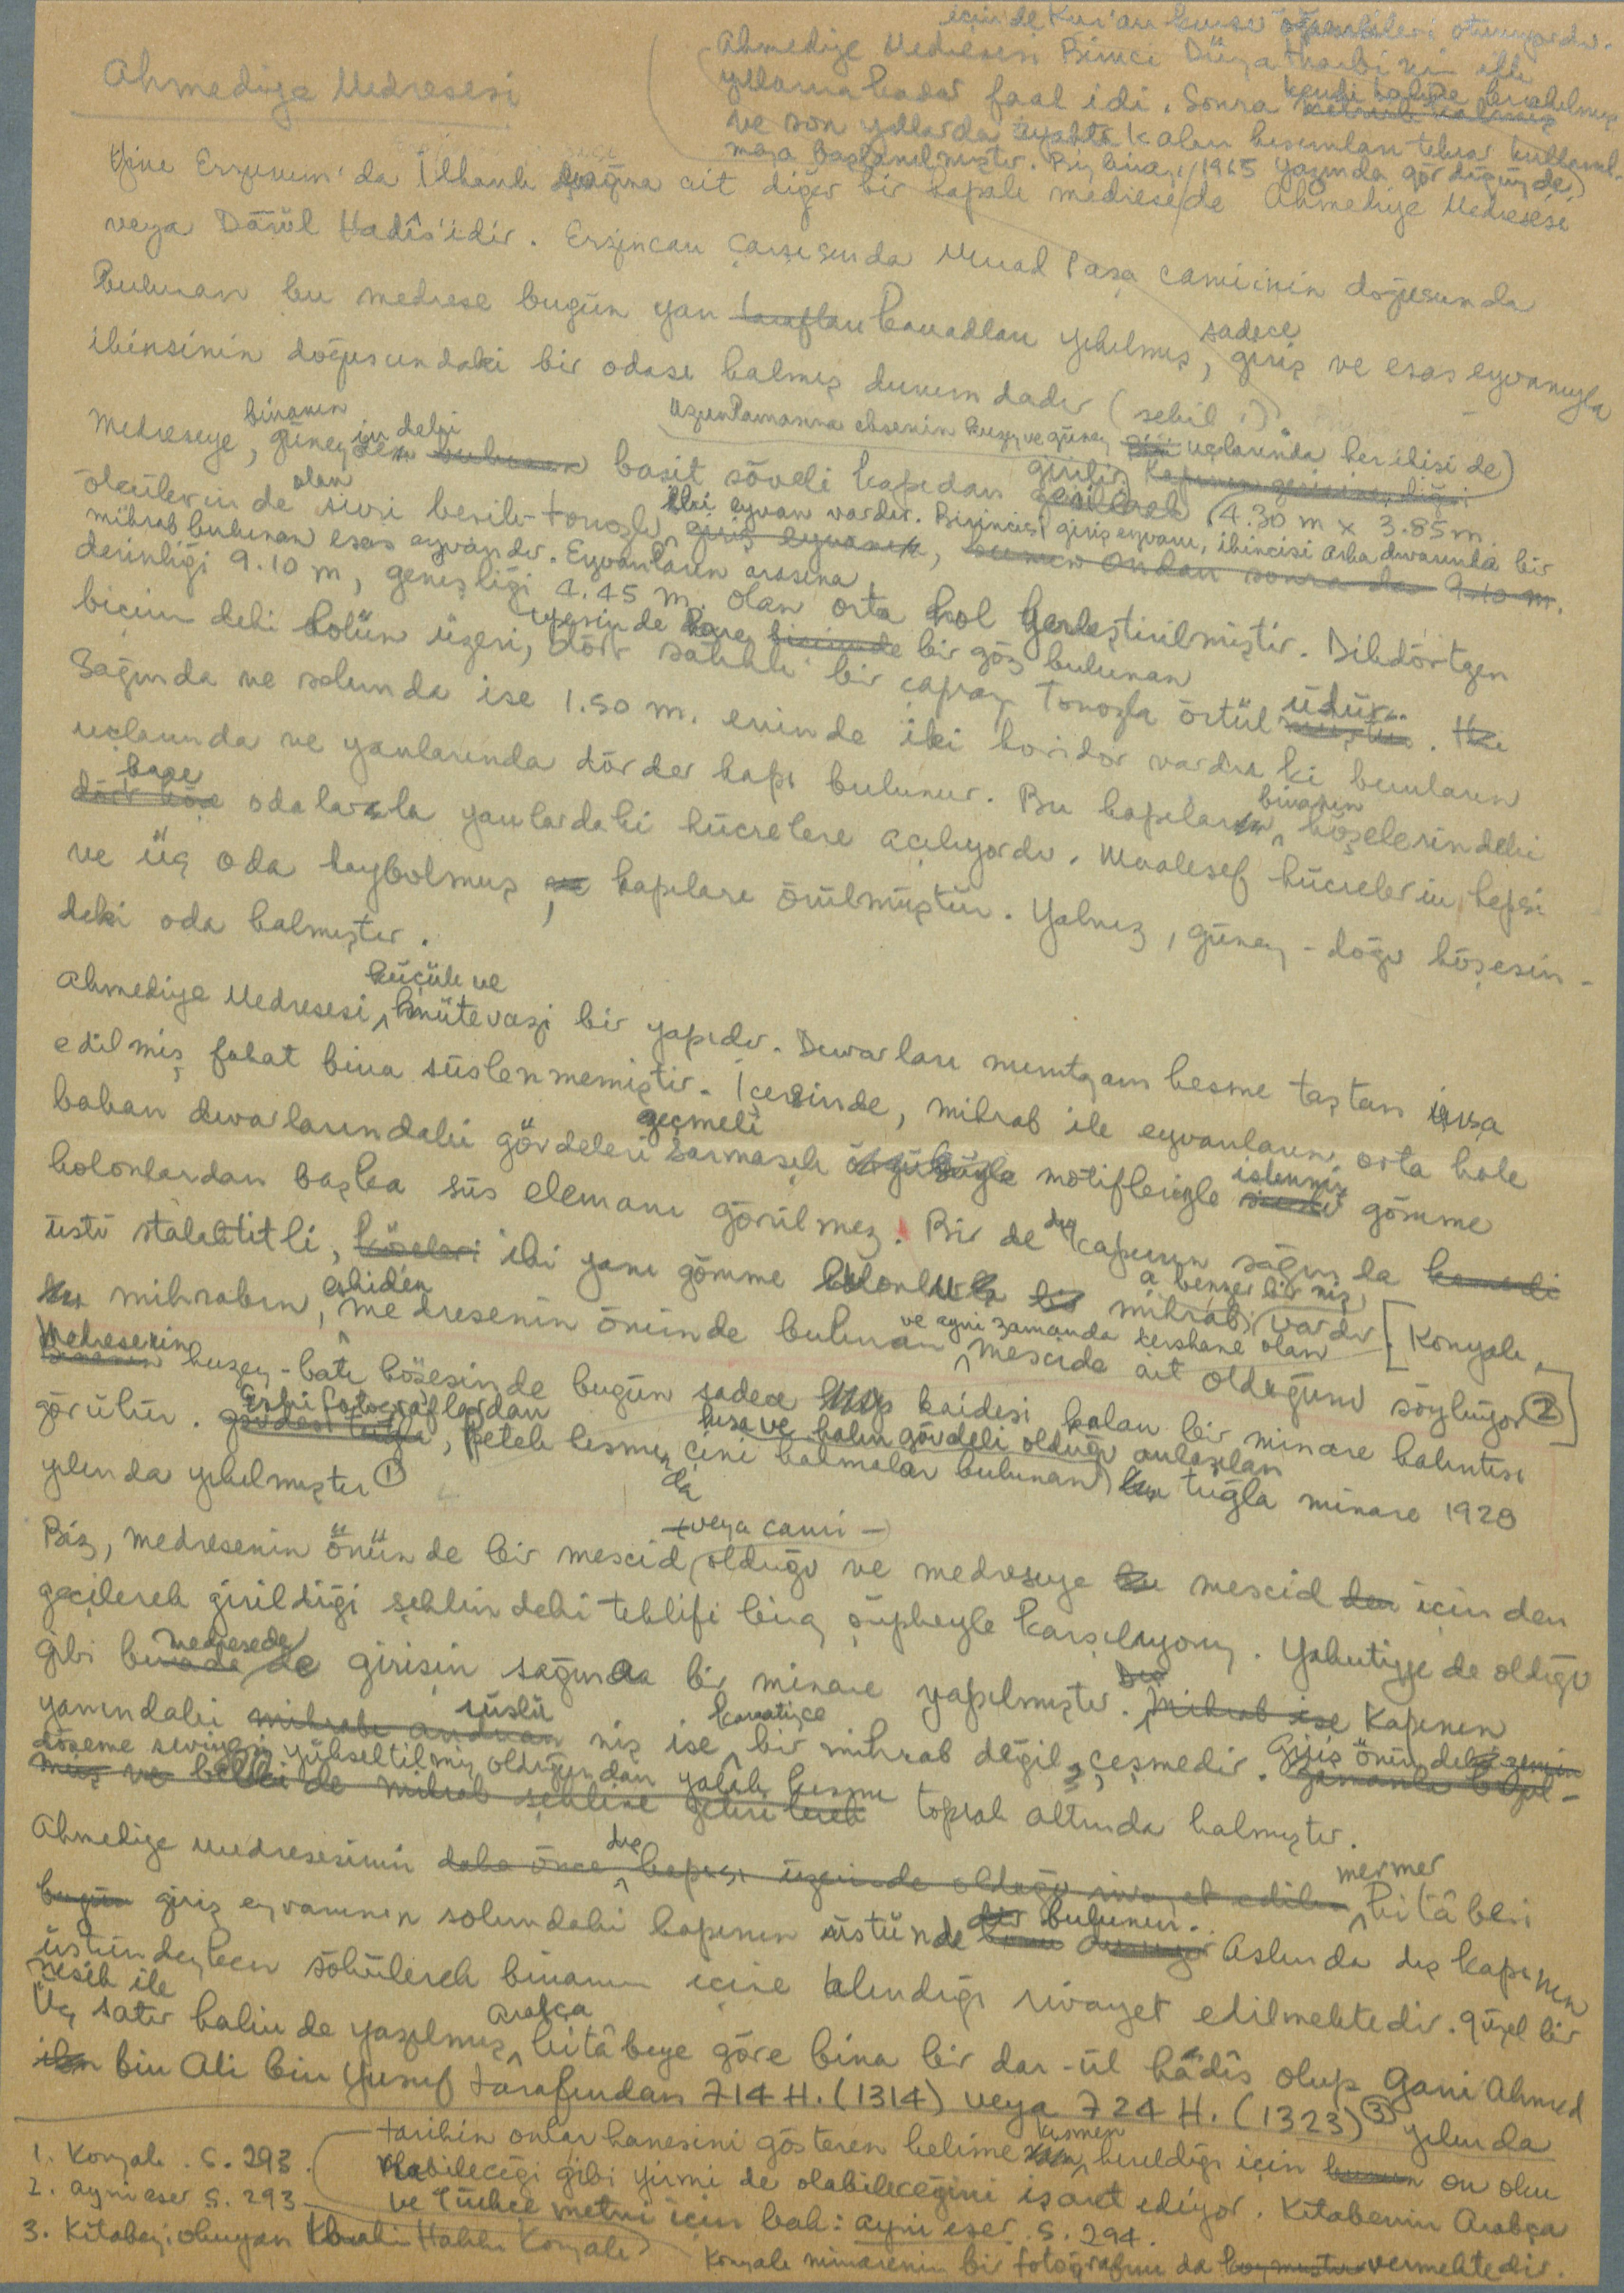 Ahmediye Medresesi
içinde Kur'an kursu öğrencileri oturuyordu.
Ahmediye Medresesi Birinci Dünya Harbi'nin ilk
yıllarına kadar faal idi. Sonra kendi haline bırakılmış
ve son yıllarda ayakta kalan kısımları tekrar kullanıl-
maya başlanılmıştır. Biz binayı 1965 yazında gördüğümüzde
Yine Erzurum'da İlhanlı çağına ait diğer bir kapalı medresede Ahmediye Medresesi
veya Dârül Hadîs'idir. Erzincan Çarşısında Murad Paşa camiinin doğusunda
bulunan bu medrese bugün yan tarafları kanadları yıkılmış, sadece giriş ve esas eyvanıyla
ikinsinin doğusundaki bir odası kalmış durumdadır (şekil :).
Medreseye, binanın güneyindeki basit söveli kapıdan girilir.
uzunlamasına eksenin kuzey ve güney uçlarında her ikisi de)
4.30 m x 3.85 m.
ölçülerinde olan sivri beşik-tonozlu iki eyvan vardır. Birincisi giriş eyvanı, ikincisi arka duvarında bir
mihrab bulunan esas eyvandır. Eyvanların arasına
derinliği 9.10 m, genişliği 4.45 m. olan orta hol yerleştirilmiştir. Dikdörtgen
biçimdeki holün üzeri, tepesinde kare bir göz bulunan
dört satıhlı bir çapraz tonozla örtülüdür.
Sağında ve solunda ise 1.50 m. eninde iki koridor vardır ki bunların
uçlarında ve yanlarında dörder kapı bulunur. Bu kapılar binanın köşelerindeki
kare odalarla yanlardaki hücrelere açılıyordu. Maalesef hücrelerin hepsi
ve üç oda kaybolmuş, kapıları örülmüştür. Yalnız, güney-doğu köşesin-
deki oda kalmıştır.
Ahmediye Medresesi küçük ve mütevazi bir yapıdır. Duvarları muntazam kesme taştan inşa
edilmiş fakat bina süslenmemiştir. İçerisinde, mihrab ile eyvanların orta hole
bakan duvarlarındaki gövdeleri geçmeli sarmaşık motifleriyle işlenmiş gömme
kolonlardan başka süs elemanı görülmez. Bir de dış kapının sağında
üstü stalaktitli, iki yanı gömme kolonlu mihraba benzer bir niş vardır. [Konyalı,
mihrabın, eskiden medresenin önünde bulunan ve aynı zamanda dershane olan mescide ait olduğunu söylüyor ②]
Medresenin kuzey-batı köşesinde bugün sadece kaidesi kalan bir minare kalıntısı
görülür. Eski fotoğraflardan kısa ve kalın gövdeli olduğu anlaşılan
, petek kısmında çini kakmaları bulunan tuğla minare 1928
yılında yıkılmıştır ①
Biz, medresenin önünde bir mescid (veya cami) olduğu ve medreseye mescid içinden
geçilerek girildiği şeklindeki teklifi biraz şüpheyle karşılıyoruz. Yakutiyye de olduğu
gibi bu medresede girişin sağında bir minare yapılmıştır. Kapının
yanındaki süslü niş ise kanatimce bir mihrab değil, çeşmedir. Giriş önündeki zemin
döşeme seviyesi yükseltilmiş olduğundan yalak kısmı toprak altında kalmıştır.
Ahmediye medresesinin daha önce dış kapısı üzerinde olduğu rivayet edilen mermer kitâbesi
giriş eyvanının solundaki kapının üstünde bulunur. Aslında dış kapının
üstündeyken sökülerek binanın içine alındığı rivayet edilmektedir. Güzel bir
nesih ile
Üç satır halinde yazılmış Arabça kitâbeye göre bina bir dar-ül hâdîs olup Gani Ahmed
bin Ali bin Yusuf tarafından 714 H. (1314) veya 724 H. (1323) ③ yılında
1. Konyalı. S. 293
2. aynı eser S. 293
3. Kitabeyi okuyan İbrahim Hakkı Konyalı
tarihin onlar hanesini gösteren kelime kısmen kırıldığı için on olu
olabileceği gibi yirmi de olabileceğini işaret ediyor. Kitabenin Arabça
ve Türkçe metni için bak: aynı eser. S. 294.
Konyalı minarenin bir fotoğrafını da vermektedir.